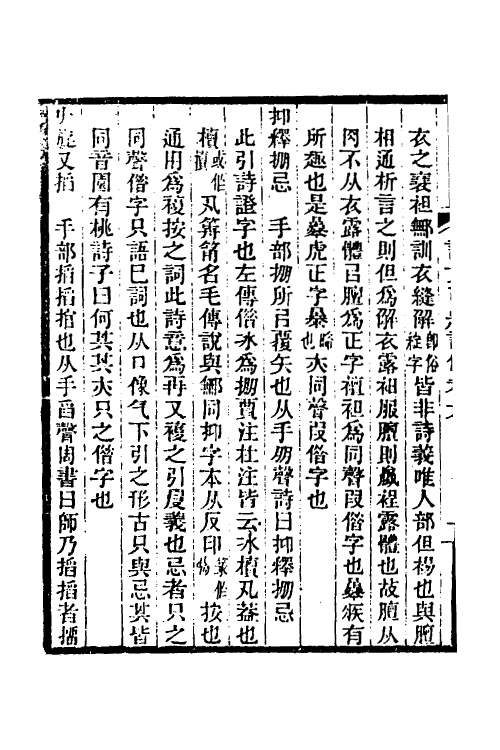 衣之裒袒鄦訓衣縫解卽俗綻字皆非詩義唯人部但裼也與膻
相通析言之則但爲解衣露袒服膻則臝裎露體也故膻从
肉不从衣露體㠯膻爲正字襢袒爲同聲叚俗字也㬥疾有
所趣也是㬥虎正字暴晞也夲同聲叚俗字也
抑釋掤忌 手部掤所㠯覆矢也从手朋聲詩曰抑釋掤忌
此引詩證字也左傳俗冰爲掤賈注杜注皆云冰櫝丸葢也
櫝或作韥丸箭筩名毛傳說與鄦同抑字本从反印篆作按也
通用爲複按之詞此詩意爲再又複之引叚義也忌者只之
同聲俗字只語巳詞也从口像气下引之形古只與忌其皆
同音園有桃詩子曰何其其夲只之俗字也
左旋又搯 手部搯搯捾也从手舀聲周書曰師乃搯搯者㩅